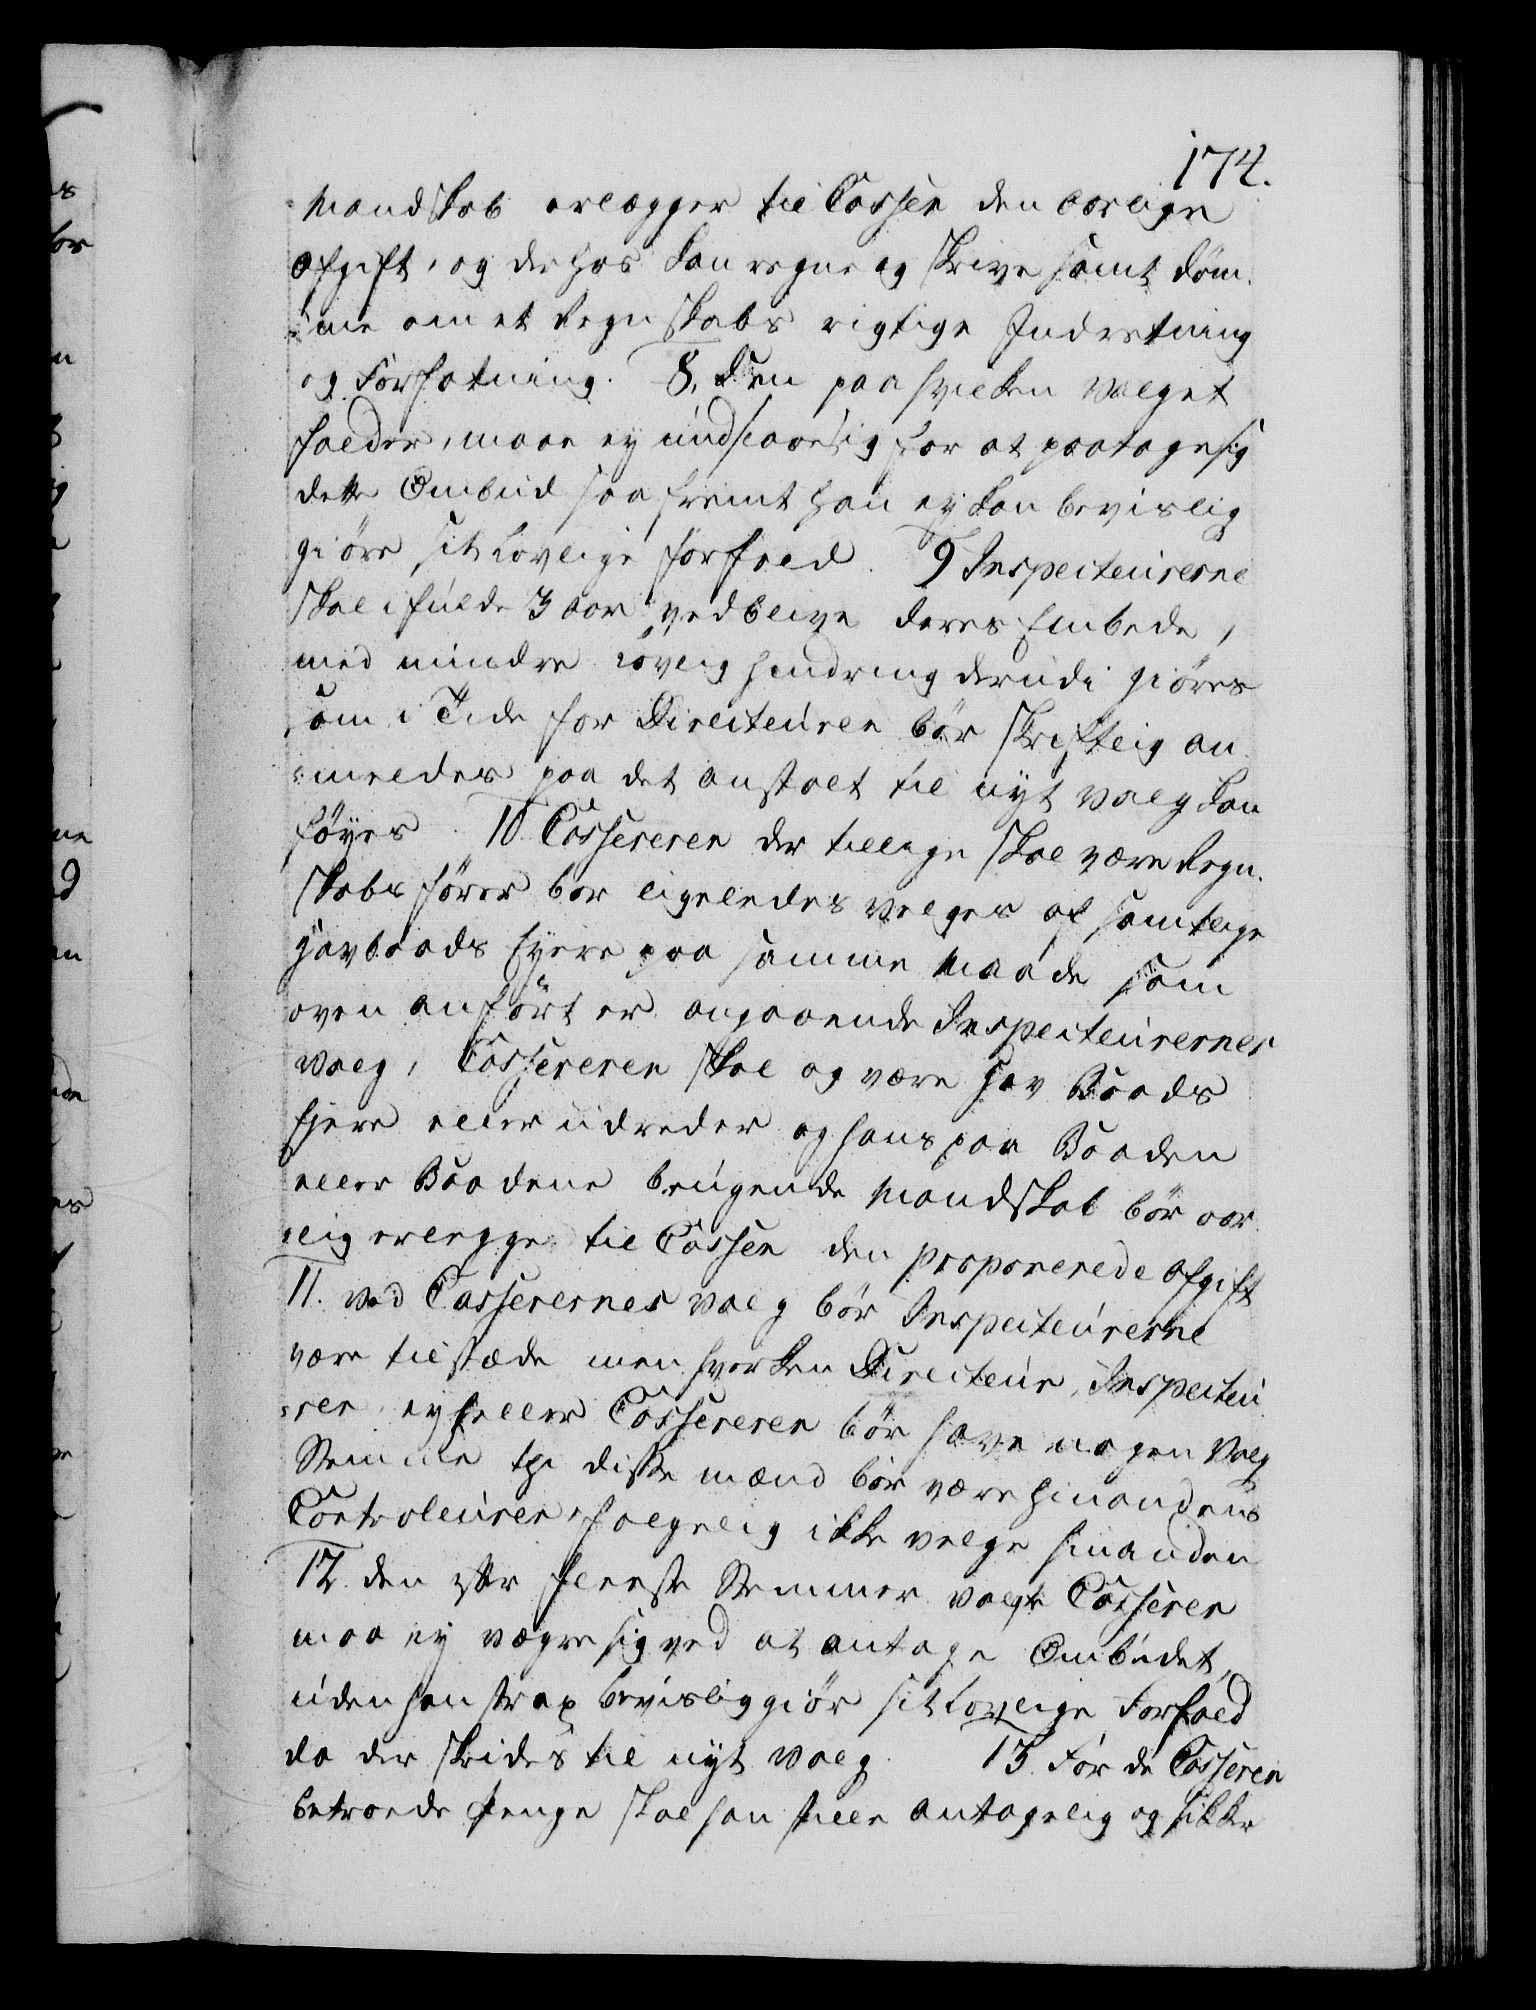 174.
Mandskab erlægger til Cassen den aarlige
Afgift, og derhos kan regne og skrive samt döm-
-me om et Regnskabs rigtige Indretning
og Forfatning. 8, Den paa hvilken Valget
falder, maae ey undslaae sig for at paatage sig
dette Ombud saa fremt han ey kan bevislig
giöre sit lovlige Forfald. 9 Inspecteurerne
skal i fulde 3 Aar vedblive deres Embede,
med mindre lovlig Hindring derudi giöres
som i Tide for Directeuren bör skriftlig an-
-meldes paa det Anstalt til nyt Valg kan
föyes. 10 Cassereren der tillige skal være Regn-
skabsförer bör ligeledes velges af samtlige
Havbaads Eyere paa samme Maade som
oven anfört er angaaende Inspecteurernes
Valg, Cassereren skal og være Hav Baads
Ejere eller Udreder og hans paa Baaden
eller Baadene brugende Mandskab bör aar-
-lig erlegge til Cassen den proponerede Afgift
11. Ved Casserernes Valg bör Inspecteurerne
være tilstæde men hverken Directeur, Inspecteu-
-rer, ey heller Cassereren bör have nogen Valg
Stemme thi disse Mænd bör være hinandens
Controleurer, fölgelig ikke velge hinanden
12. Den efter fleeste Stemmer valgte Casserer
maa ey vægre sig ved at antage Ombudet,
uden han strax bevisliggiör sit lovlige Forfald
da der skrides til nyt Valg. 13 For de Casseren
betroede Penge skal han stille antagelig og sikker